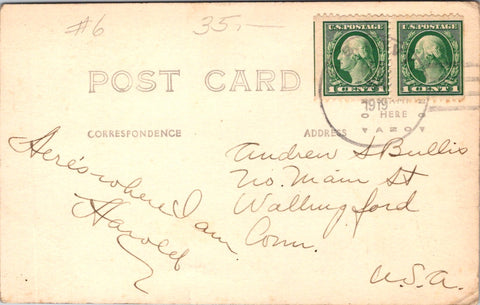 #6
35.—
U.S. POSTAGE
1 CENT 1
U.S. POSTAGE
1 CENT 1
POST CARD
1919
HERE
CORRESPONDENCE
ADDRESS
Here's where I am
Harold
Andrew S Bullis
No. Main St
Wallingford
Conn.
U.S.A.